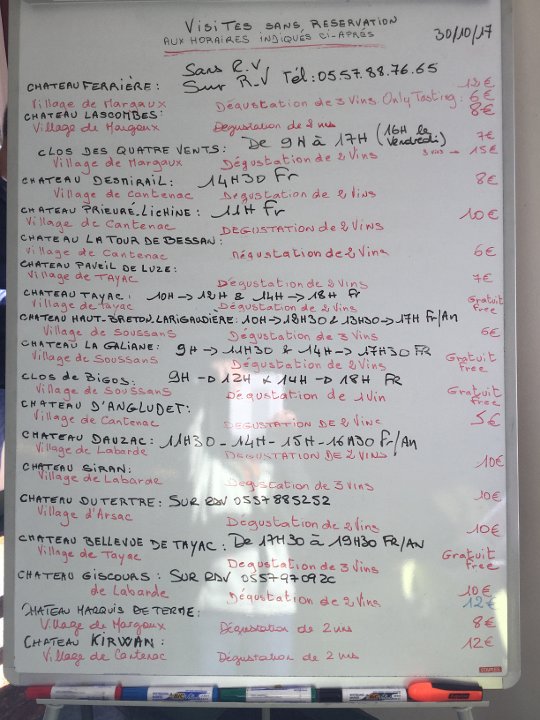 VISITES SANS RESERVATION
AUX HORAIRES INDIQUÉS CI-APRÈS
30/10/17
Sans R.V,
CHATEAU FERRIÈRE: Sur R.V Tél:0557.88.76.65 12€
Village de Margaux Dégustation de 3 Vins Only Tasting: 6€
CHATEAU LASCOMBES: 8€
Village de Margaux Degustation de 2 vins
CLOS DES QUATRE VENTS: De 9H à 17H (16H le Vendredi) 7€
Village de Margaux Dégustation de 2 Vins 3 vins → 15€
CHATEAU DESMIRAIL: 14H30 Fr 8€
Village de Cantenac Degustation de 2 Vins
CHATEAU PRIEURÉ.LICHINE: 11H Fr 10€
Village de Cantenac DEGUSTATION de 2 Vins
CHATEAU LA TOUR DE BESSAN:
Village de Cantenac Dégustation de 2 Vins 6€
CHATEAU PAVEIL DE LUZE:
Village de TAYAC Dégustation de 2 Vins 7€
CHATEAU TAYAC: 10H → 12H & 14H → 18H Fr Gratuit
Village de Tayac Dégustation de 2 Vins Free
CHATEAU HAUT-BRETON.LARIGAUDIÈRE: 10H→12H30 & 13H30→17H FR/AN
Village de SOUSSANS Dégustation de 3 Vins 6€
CHATEAU LA GALIANE: 9H → 11H30 & 14H → 17H30 FR Gratuit
Village de SOUSSANS Dégustation de 2 Vins Free
CLOS DE BIGOS: 9H → 12H & 14H → 18H FR Gratuit
Village de SOUSSANS Dégustation de 1 Vin Free
CHATEAU D'ANGLUDET: 5€
Village de Cantenac DEGUSTATION de 2 Vins
CHATEAU DAUZAC: 11H30 - 14H - 15H - 16H30 Fr/An
Village de Labarde DEGUSTATION DE 2 VINS 10€
CHATEAU SIRAN:
Village de Labarde Degustation de 3 vins
CHATEAU DUTERTRE: SUR RDV 0557885252 10€
Village d'Arsac Dégustation de 2 Vins 10€
CHATEAU BELLEVUE DE TAYAC: De 17H30 à 19H30 FR/AN
Village de Tayac Degustation de 3 Vins Gratuit Free
CHATEAU GISCOURS: SUR RDV 10€
de Labarde Dégustation de 2 Vins 12€
CHATEAU MARQUIS DE TERME:
Village de Margaux Dégustation de 2 vins 8€
CHATEAU KIRWAN: 12€
Village de Cantenac Dégustation de 2 vins
STAPLES